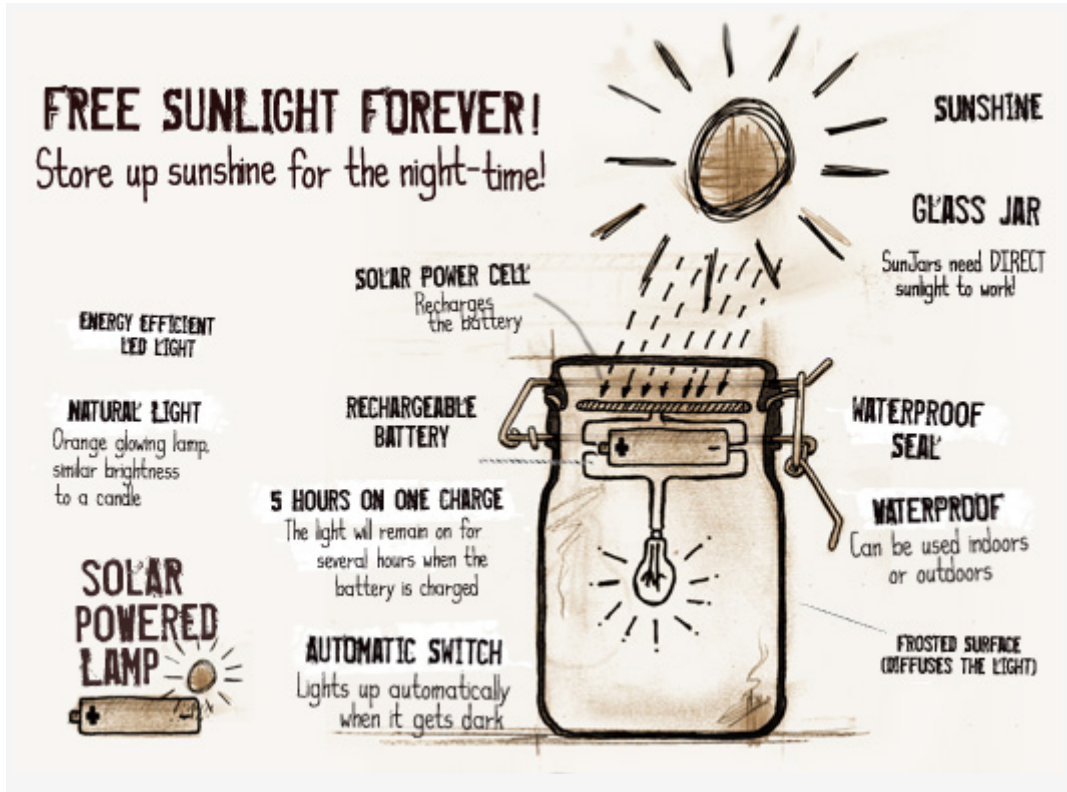 FREE SUNLIGHT FOREVER!
Store up sunshine for the night-time!
SUNSHINE
GLASS JAR
SunJars need DIRECT
sunlight to work!
SOLAR POWER CELL
Recharges
the battery
ENERGY EFFICIENT
LED LIGHT
NATURAL LIGHT
Orange glowing lamp,
similar brightness
to a candle
RECHARGEABLE
BATTERY
WATERPROOF
SEAL
5 HOURS ON ONE CHARGE
The light will remain on for
several hours when the
battery is charged
WATERPROOF
Can be used indoors
or outdoors
SOLAR
POWERED
LAMP
AUTOMATIC SWITCH
Lights up automatically
when it gets dark
FROSTED SURFACE
(DIFFUSES THE LIGHT)
+ -
+ -